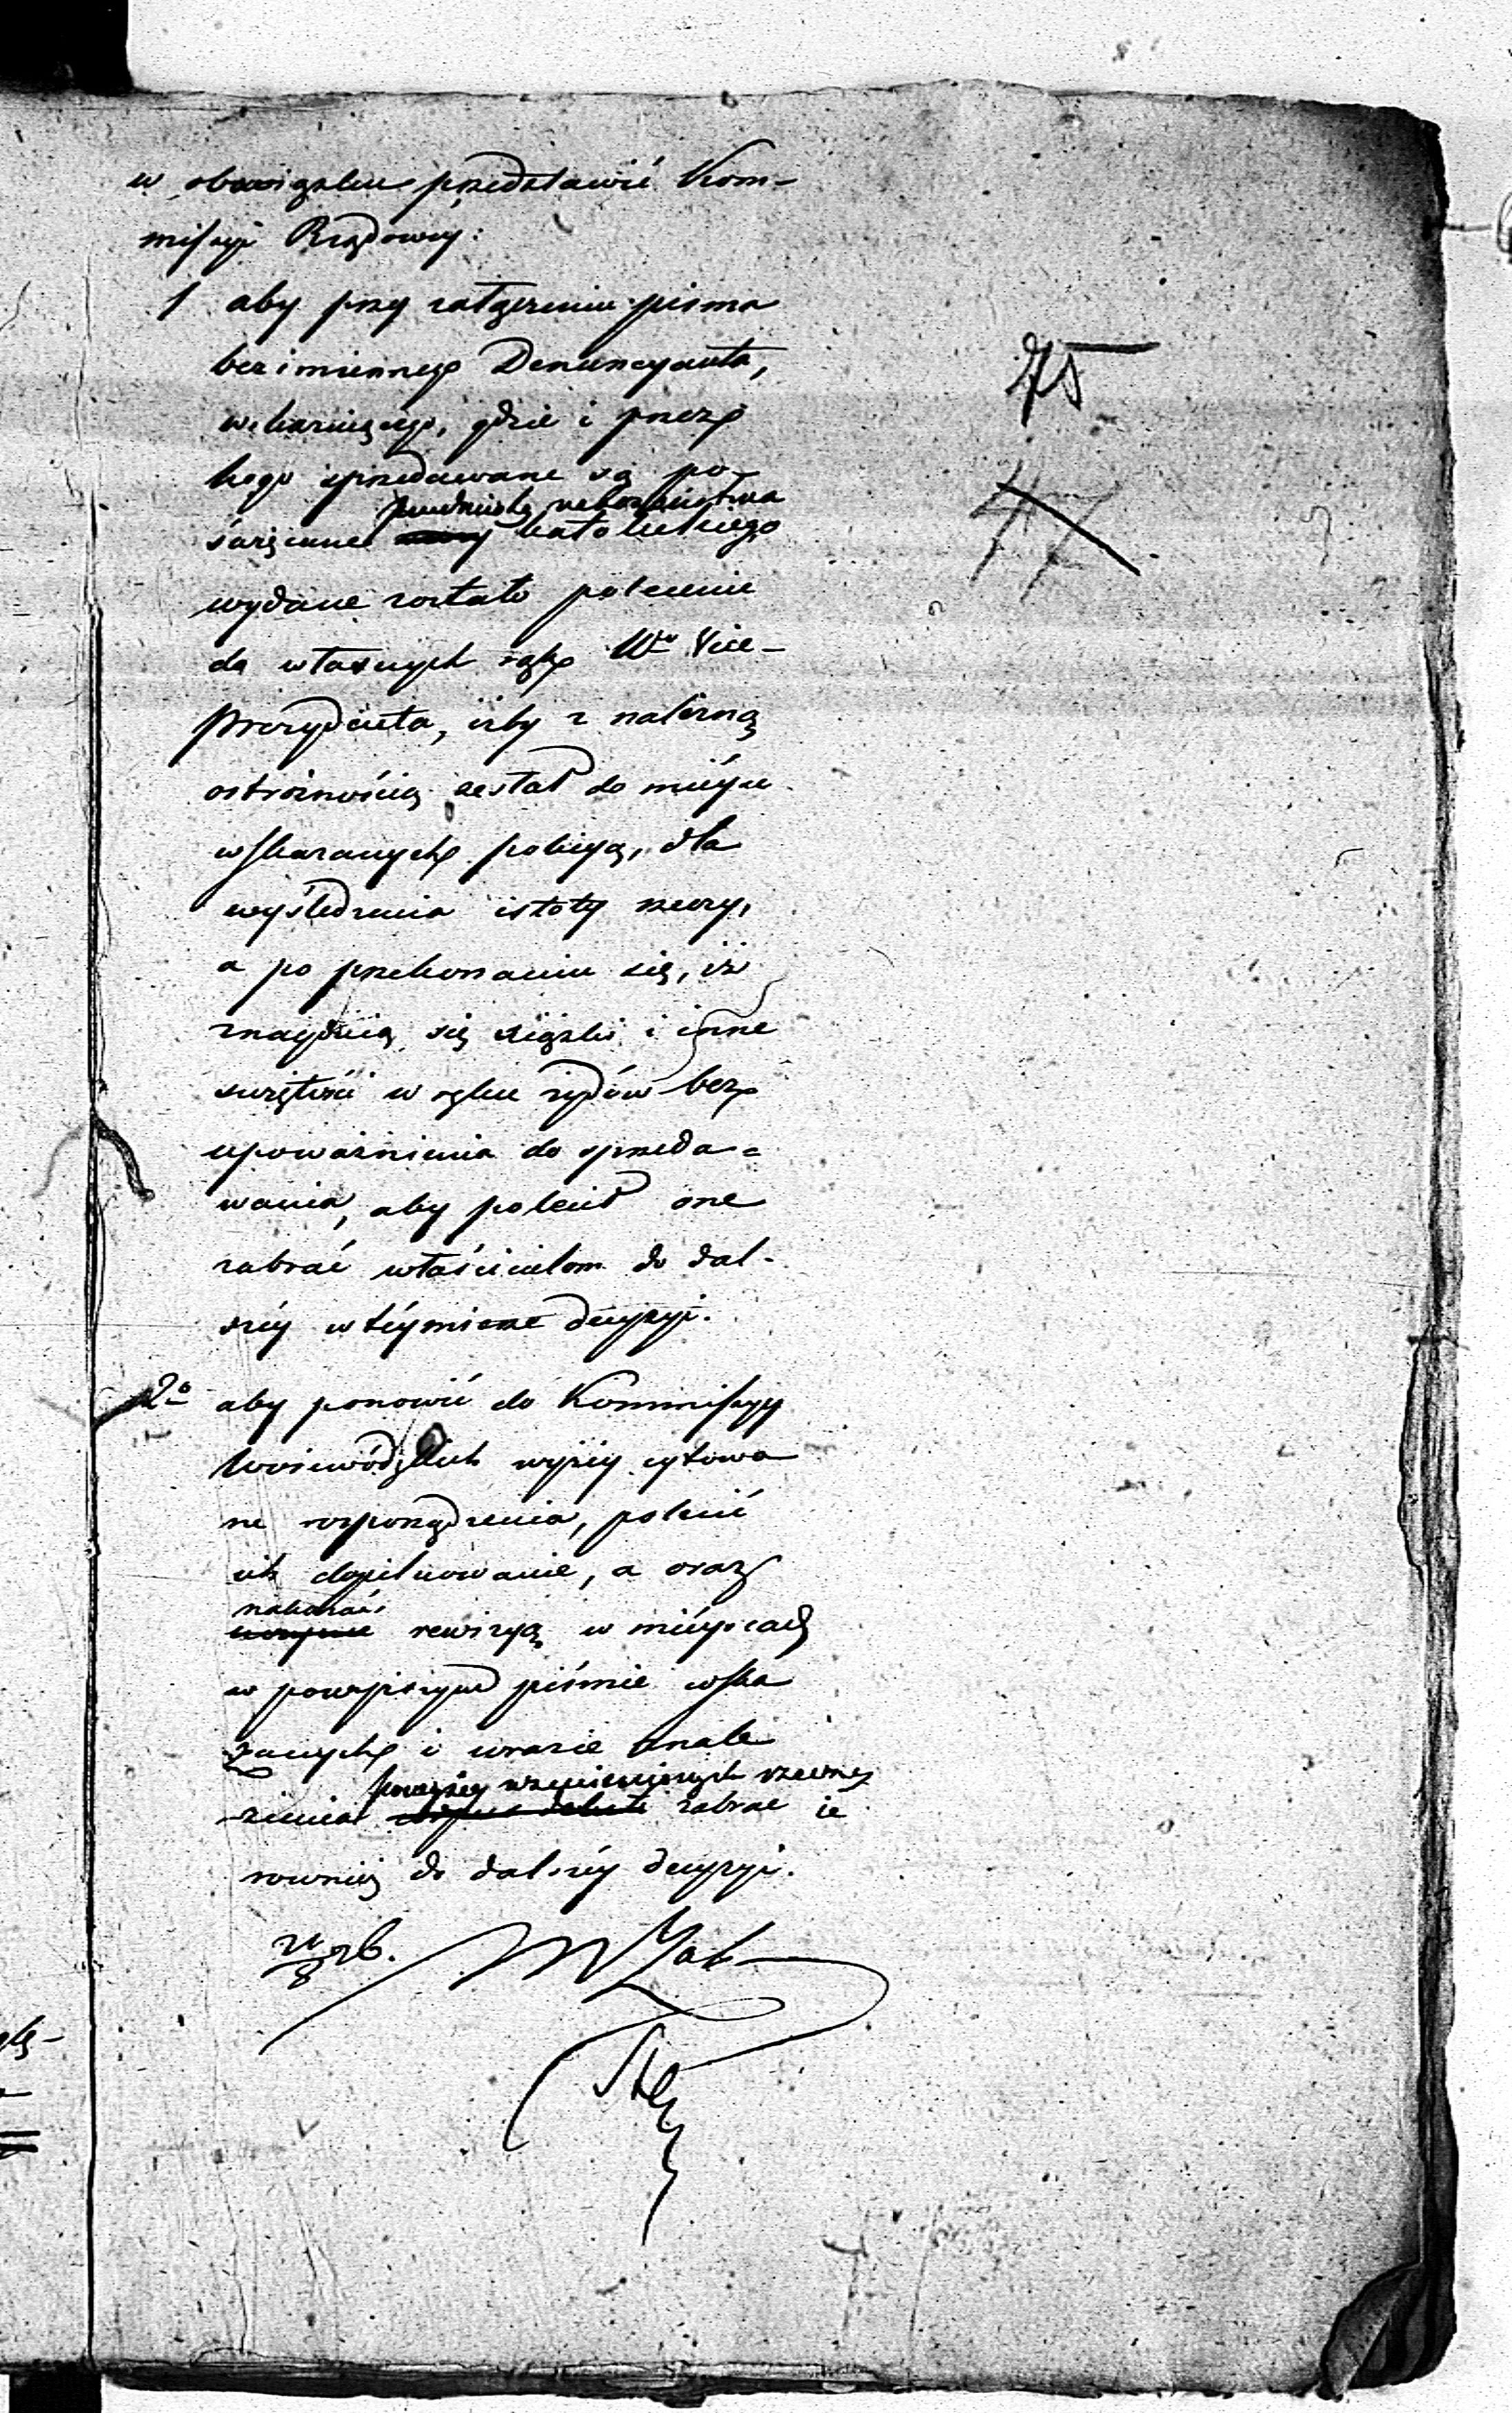 w obowiązku przedstawić Kom-
missyi Rządowéy:
1 aby przy załączeniu pisma
bezimiennego Denuncyanta,
wskazuiącego, gdzie i przez
kogo sprzedawane są po-
przedmioty nabożeństwa
święcane katolickiego
wydane zostało polecenie
do własnych rąk Wo Vice-
Prezydenta, iżby z należną
ostrożnością zesłał do mieysc
wskazanych policyą, dla
wyśledzenia istoty rzeczy,
a po przekonaniu się, iż
znayduią się książki i inne
świętości w ręku żydów bez
upoważnienia do sprzeda=
wania, aby polecił one
zabrać właścicielom do dal-
széy w téymierze decyzyi.
2o aby ponowić do Kommissyy
Woiewódzkich wyżéy cytowa
ne rozporządzenia, polecić
ich dopilnowanie, a oraz
nakazać
rewizyą w mieyscach
w powyższym piśmie wska
zanych i w razie znale
powyżéy wzmienionych rzeczy
zienia zabrać ie
rownież do dalszéy decyzyi.
75
47